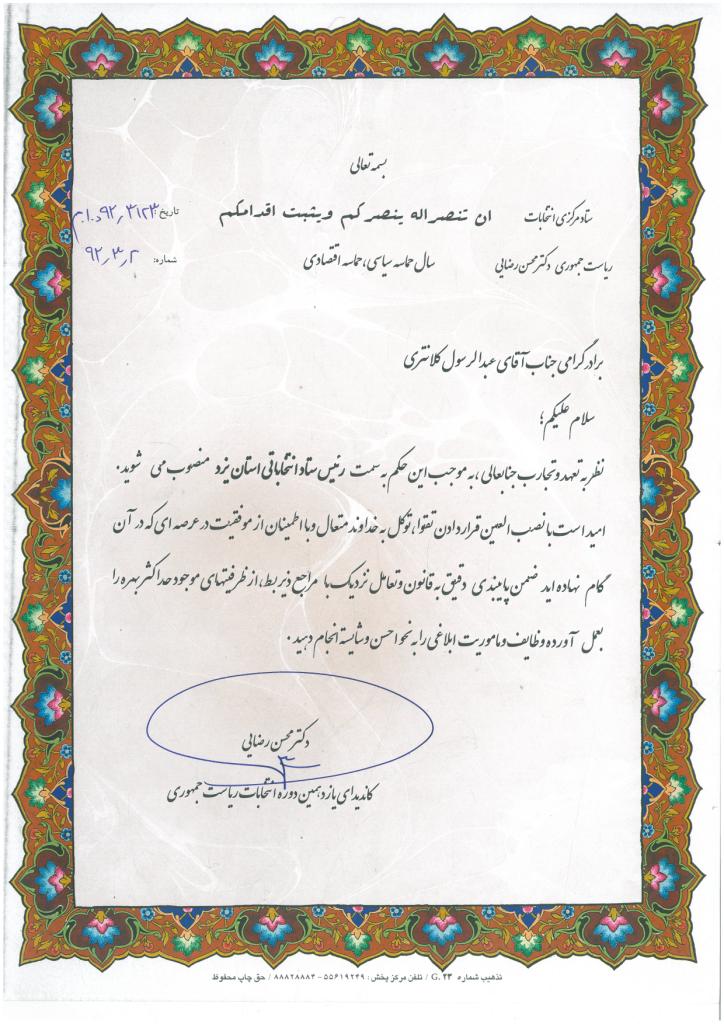 بسمه تعالی
ستاد مرکزی انتخابات
ان تنصراله ینصرکم ویثبت اقدامکم
تاریخ:
ریاست جمهوری دکتر محسن رضایی
سال حماسه سیاسی، حماسه اقتصادی
شماره: ۹۲٫۳٫۲
برادر گرامی جناب آقای عبدالرسول کلانتری
سلام علیکم؛
نظر به تعهد و تجارب جنابعالی، به موجب این حکم به سمت رئیس ستاد انتخاباتی استان یزد منصوب می شوید.
امید است با نصب العین قرار دادن تقوا، توکل به خداوند متعال و با اطمینان از موفقیت در عرصه ای که در آن
گام نهاده اید ضمن پایبندی دقیق به قانون و تعامل نزدیک با مراجع ذیربط، از ظرفیتهای موجود حداکثر بهره را
بعمل آورده وظایف و ماموریت ابلاغی را به نحو احسن و شایسته انجام دهید.
دکتر محسن رضایی
کاندیدای یازدهمین دوره انتخابات ریاست جمهوری
تذهیب شماره G. ۲۳ / تلفن مرکز پخش: ۵۵۶۱۹۲۴۹ - ۸۸۸۲۸۸۸۴ / حق چاپ محفوظ